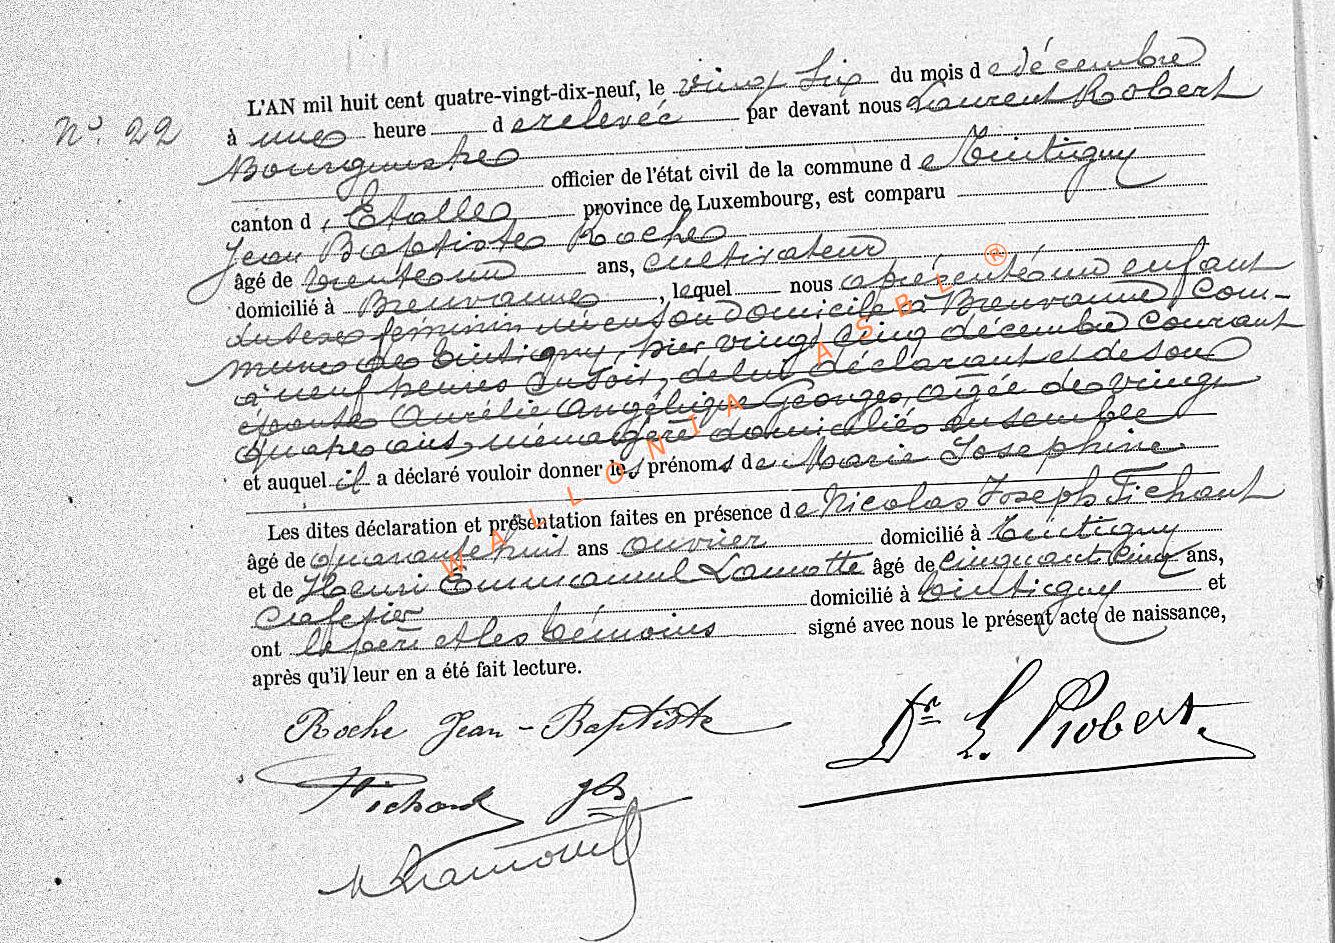 L'AN mil huit cent quatre-vingt-dix-neuf, le vingt six du mois de décembre
N° 22 à une heure de relevée par devant nous Laurent Robert
Bourgmestre
officier de l'état civil de la commune de Tintigny
canton d'Etalle province de Luxembourg, est comparu
Jean Baptiste Roche
âgé de trente un ans, cultivateur
domicilié à Breuvanne, lequel nous a présenté un enfant
du sexe féminin né en son domicile à Breuvanne, Com-
mune de Tintigny, hier vingt cinq décembre courant
à neuf heures du soir, de lui déclarant et de son
épouse Aurélie Angélique Georges, agée de vingt
quatre ans, ménagère domiciliés ensemble
et auquel il a déclaré vouloir donner les prénoms de Marie Josephine
Les dites déclaration et présentation faites en présence de Nicolas Joseph Fichant
âgé de quarante huit ans ouvrier domicilié à Tintigny
et de Henri Emmanuel Lamotte âgé de cinquant cinq ans,
domicilié à Tintigny et
ont le père et les témoins signé avec nous le présent acte de naissance,
après qu'il leur en a été fait lecture.
Roche Jean-Baptiste
Dr L. Robert
Fichant
WALLONIA ASBL ®